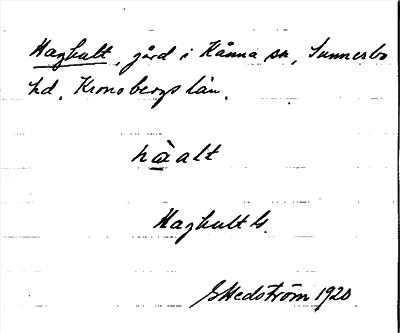 Haghult, gård i Kånna sn, Sunnerbo
hd. Kronobergs län.
hàalt
Haghult b.
G Hedström 1920